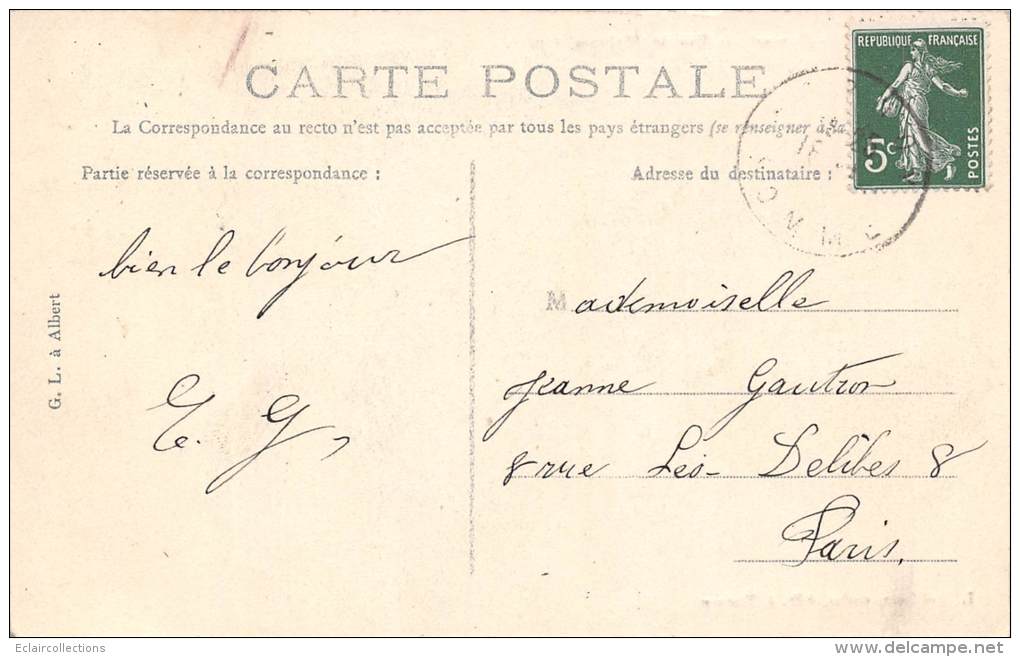 RÉPUBLIQUE FRANÇAISE
5c
POSTES
CARTE POSTALE
La Correspondance au recto n'est pas acceptée par tous les pays étrangers (se renseigner à la
Partie réservée à la correspondance :
Adresse du destinataire :
bien le bonjour
E. G,
G. L. à Albert
Mademoiselle
Jeanne Gautron
8 rue Léo- Delibes 8
Paris,
Eclaircollections
delcampe.net